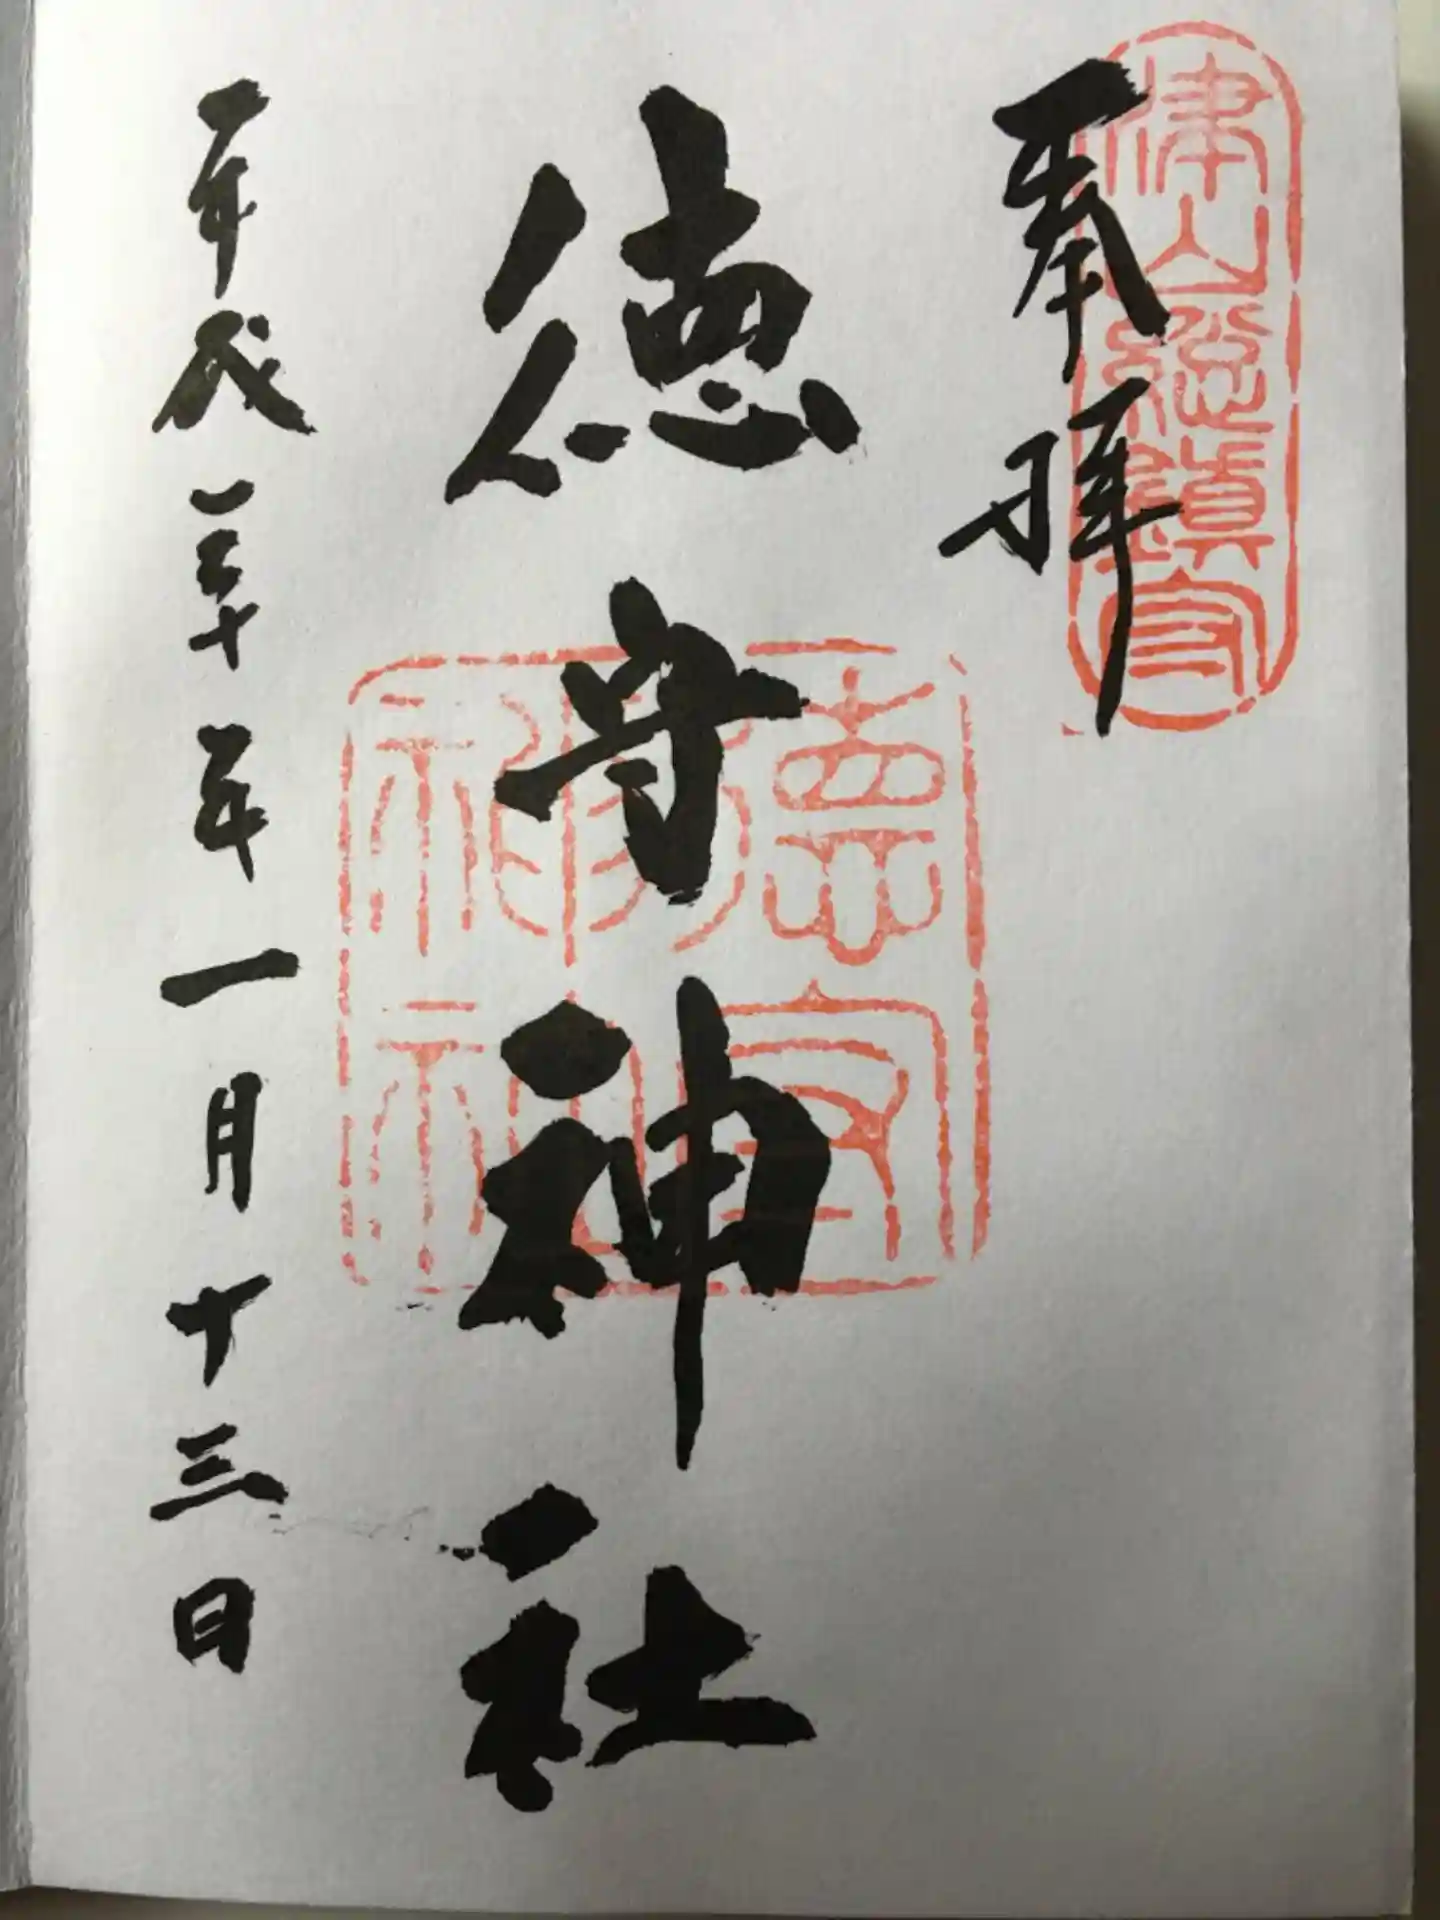 津山総鎮守
奉拝
徳守神社
徳守神社
平成三十年一月十三日